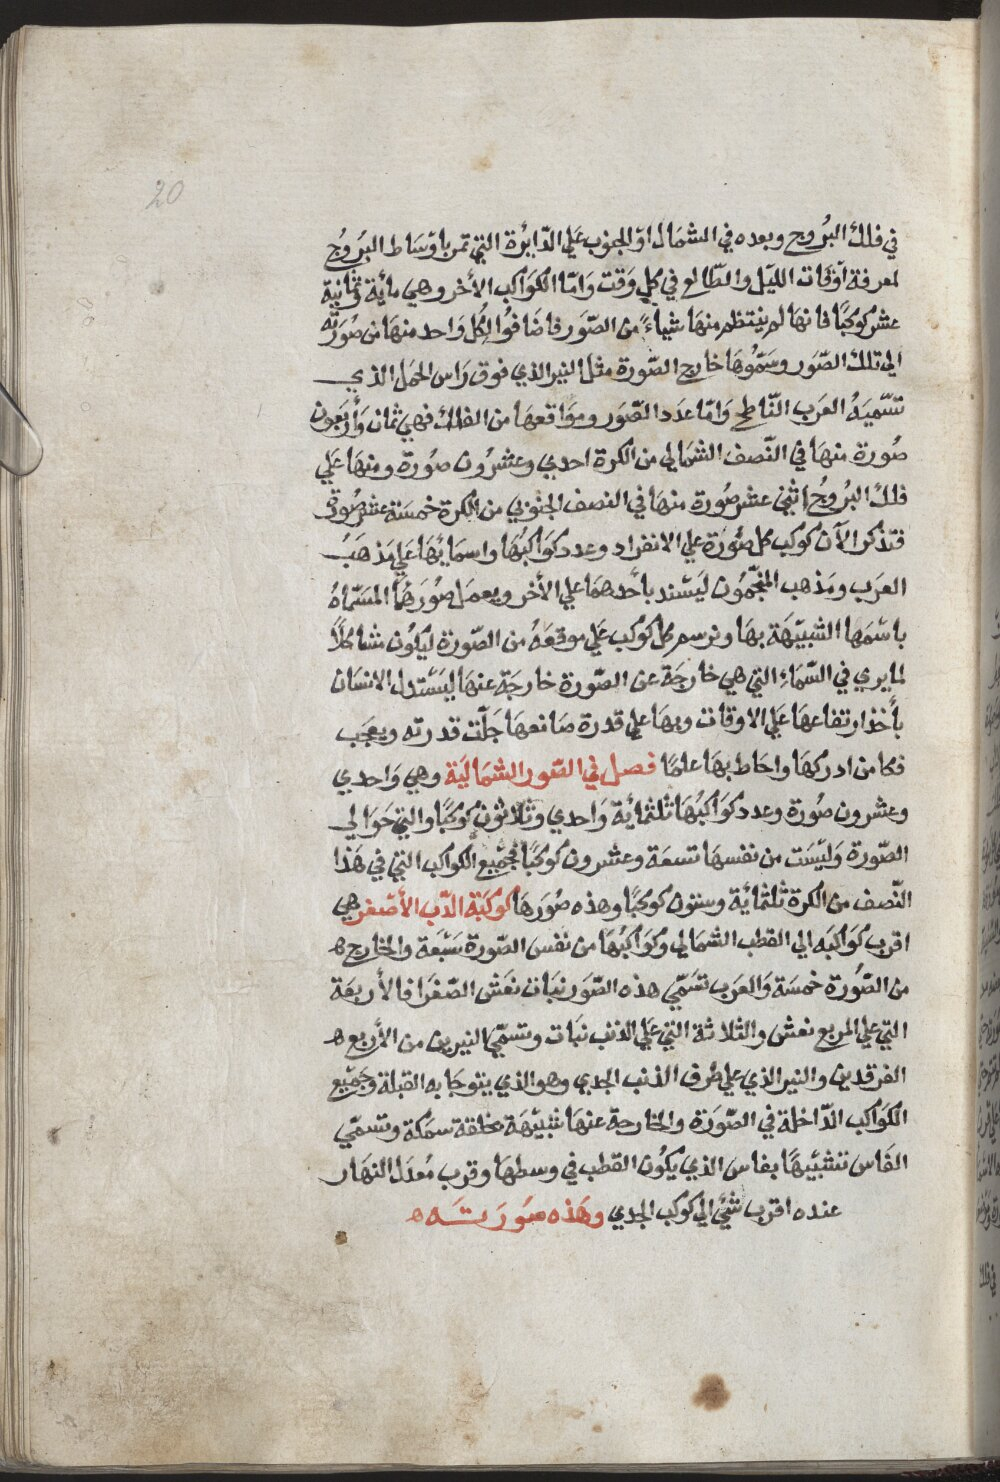 20
في فلك البُروج وبعده في الشمَال او الجنوب عَلي الدّايرة التي تمر باوسَاط البرُوجُ
لمعرفة اوْقات الليل والطّالع في كل وَقت وَامّا الكوَاكب الأخر وهي مائة وثمانية
عشر كوكبًا فانها لم ينتظم منهَا شياءً من الصّوَر فاضَافوُا لكُل وَاحد منهَا من صُوَرته
الي تلك الصّوَر وسَمّوُهَا خارج الصّورة مثل النير الذي فوق رَاس الحمَل الذي
تسّميَهُ العرَب النّاطح وَامّا عدَد الصّوَر ومَوَاقعهَا من الفلك فهي ثمان وَأربَعون
صُورة منهَا في النّصف الشمَالي من الكرة احدي وعشرُون صوُرة ومنهَا عَلي
فلك البرُوجُ اثني عشر صُورة منهَا في النصف الجنوُبي من الكرة خمسَة عشر صُورة
فتذكر الآن كوكب كل صُورَة علي الانفراد وعدد كوَاكبُهَا واسمَايُهَا عَلي مَذهَبُ
العرَب ومَذهب المنجّمُون ليَسْند بأحدهمَا علي الأخر ويعمَل صُورَهُا المسَمّاهُ
باسْمَها الشبيّهَة بهَا ونرسم كل كوكب عَلي موقعَهُ من الصّورة ليَكوُن مشاكلاً
لما يري في السّمَاءِ التي هي خارجَة عن الصّورة خارجَة عنهَا ليَسْتدل الانسَان
بأخذ ارتفاعهَا عَلي الاوقات وبهَا علي قدرة صَانعهَا جَلّت قدرته ويعجَب
فكل من ادركهَا واحَاط بهَا علمًا فصل في الصّور الشمَاليَة وهي وَاحدي
وعشرون صُورة وعدد كوَاكبُهَا ثلثمائة وَاحدي وثلاثون كوكبًا والتي حَوَالي
الصّورة وَليْسَت من نفسهَا تسعَة وعشرون كوكبًا فجميع الكواكب التي في هَذا
النّصف من الكرة ثلثمائة وستون كوكبًا وهذه صُوَرهَا كوكبَة الدّب الأصْغر هي
اقرب كوَاكبَه الي القطب الشمَالي وكوَاكبُهَا من نفس الصّورة سَبْعَة والخارج ه
من الصّوُرة خمسَة وَالعرَب تسَمّي هذه الصّوَر نبَات نعَش الصّغرَا فالأربعَة
التي علي المربع نعش والثلاثة التي عَلي الذنب نبَات وتسمّي النيرين من الأربع ه
الفرقدين والنير الذي علي طرف الذنب الجدي وهو الذي يتوجا به القبلة وجَميْع
الكوَاكب الدّاخلة في الصّورَة والخارجة عنهَا شبيّهَة بخلقة سمَكة وتسمّي
الفَاس تنشبيّهًا بفاس الذي يكوُن القطب في وسطهَا وقرب مُعدَل النهَار
عنده اقرب شيْ الي كوكب الجدي وهَذه صوَرَتَه ه